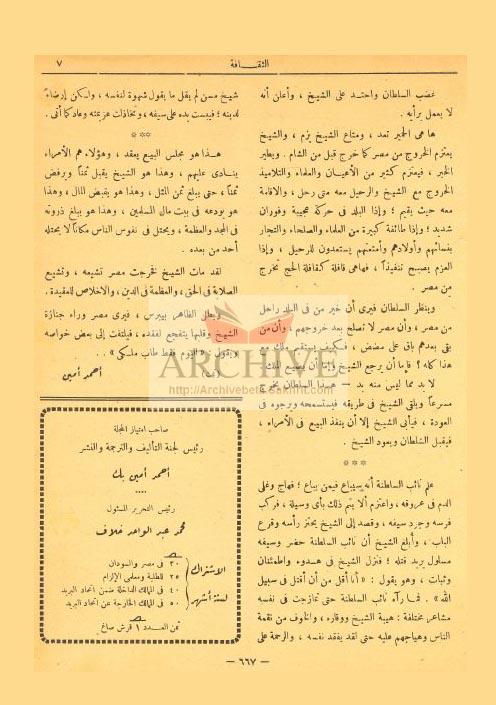 الثقافة
٧
غضب السلطان واحتد على الشيخ ، وأعلن أنه
لا يعمل برأيه .
ها هى الحمير تعد ، ومتاع الشيخ يزم ، والشيخ
يعتزم الخروج من مصر كما خرج قبل من الشام . ويطير
الخبر ، فيعتزم كثير من الأعيان والعلماء والتلاميذ
الخروج مع الشيخ والرحيل معه متى رحل ، والاقامة
معه حيث يقيم ؛ وإذا البلد فى حركة عجيبة وفوران
شديد ؛ وإذا طائفة كبيرة من العلماء والصلحاء والتجار
بنسائهم وأولادهم وأمتعتهم يستعدون للرحيل ، وإذا
العزم يصبح تنفيذاً ، فهاهى قافلة كقافلة الحج تخرج
من مصر .
وينظر السلطان فيرى أن خير من فى البلد راحل
من مصر ، وأن مصر لا تصلح بعد خروجهم ، وأن من
بقى بعدهم باق على مضض ، فكيف يستقر ملك مع
هذا كله ؟ فإما أن يرجع الشيخ وإما أن يضيع الملك .
لا بد مما ليس منه بد — هذا السلطان يخرج
مسرعاً ويلقى الشيخ فى طريقه فيستسمحه ويرجوه فى
العودة ، فيأبى الشيخ إلا أن ينفذ البيع فى الأمراء ،
فيقبل السلطان ويعود الشيخ .
***
علم نائب السلطنة أنه سيباع فيمن يباع ؛ فهاج وغلى
الدم فى عروقه ، واعتزم ألا يتم ذلك بأى وسيلة ، فركب
فرسه وجرد سيفه ، وقصد إلى الشيخ يحتز رأسه وقرع
الباب ، وأبلغ الشيخ أن نائب السلطنة حضر وسيفه
مسلول يريد قتله ؛ فنزل الشيخ فى هدوء واطمئنان
وثبات ، وهو يقول : « أنا أقل من أن أقتل فى سبيل
الله » . فما رآه نائب السلطنة حتى تمازجت فى نفسه
مشاعر مختلفة : هيبة الشيخ ووقاره ، والخوف من نقمة
الناس وهياجهم عليه حتى لقد يفقد نفسه ، والرحمة على
شيخ مسن لم يقل ما يقول شهوة لنفسه ، ولكن إرضاءً
لدينه ؛ فيبست يده على سيفه ، وتخاذلت عزيمته وعاد كما أتى .
***
هذا هو مجلس البيع يعقد ، وهؤلاء هم الأمراء
ينادى عليهم ، وهذا هو الشيخ يقبل ثمناً ويرفض
ثمناً ، حتى يبلغ ثمن المثل ، وهذا هو يقبض المال ، وهذا
هو يودعه فى بيت مال المسلمين ، وهذا هو يبلغ ذروته
فى المجد والعظمة ، ويحتل فى نفوس الناس مكاناً لا يحتله
أحد من بعده .
لقد مات الشيخ فخرجت مصر تشيعه ، وتشيع
الصلابة فى الحق ، والعظمة فى الدين ، والاخلاص للعقيدة .
ويطل الظاهر بيبرس ، فيرى مصر وراء جنازة
الشيخ وقلبها يتفجع لفقده ، فيلتفت إلى بعض خواصه
ويقول : « اليوم فقط طاب ملكى » .
أحمد أمين
صاحب امتياز المجلة
رئيس لجنة التأليف والترجمة والنشر
أحمد أمين بك
....
رئيس التحرير المسئول
محمد عبد الواحد خلاف
الاشتراك
لسنة أشهر
٣٠ فى مصر والسودان
٢٥ للطلبة ومعلمى الإلزام
٤٠ فى الممالك الداخلة ضمن اتحاد البريد
٥٠ فى الممالك الخارجة عن اتحاد البريد
ثمن العدد ١ قرش صاغ
— ٦٦٧ —
ARCHIVE
http://Archivebeta.Sakhrit.com